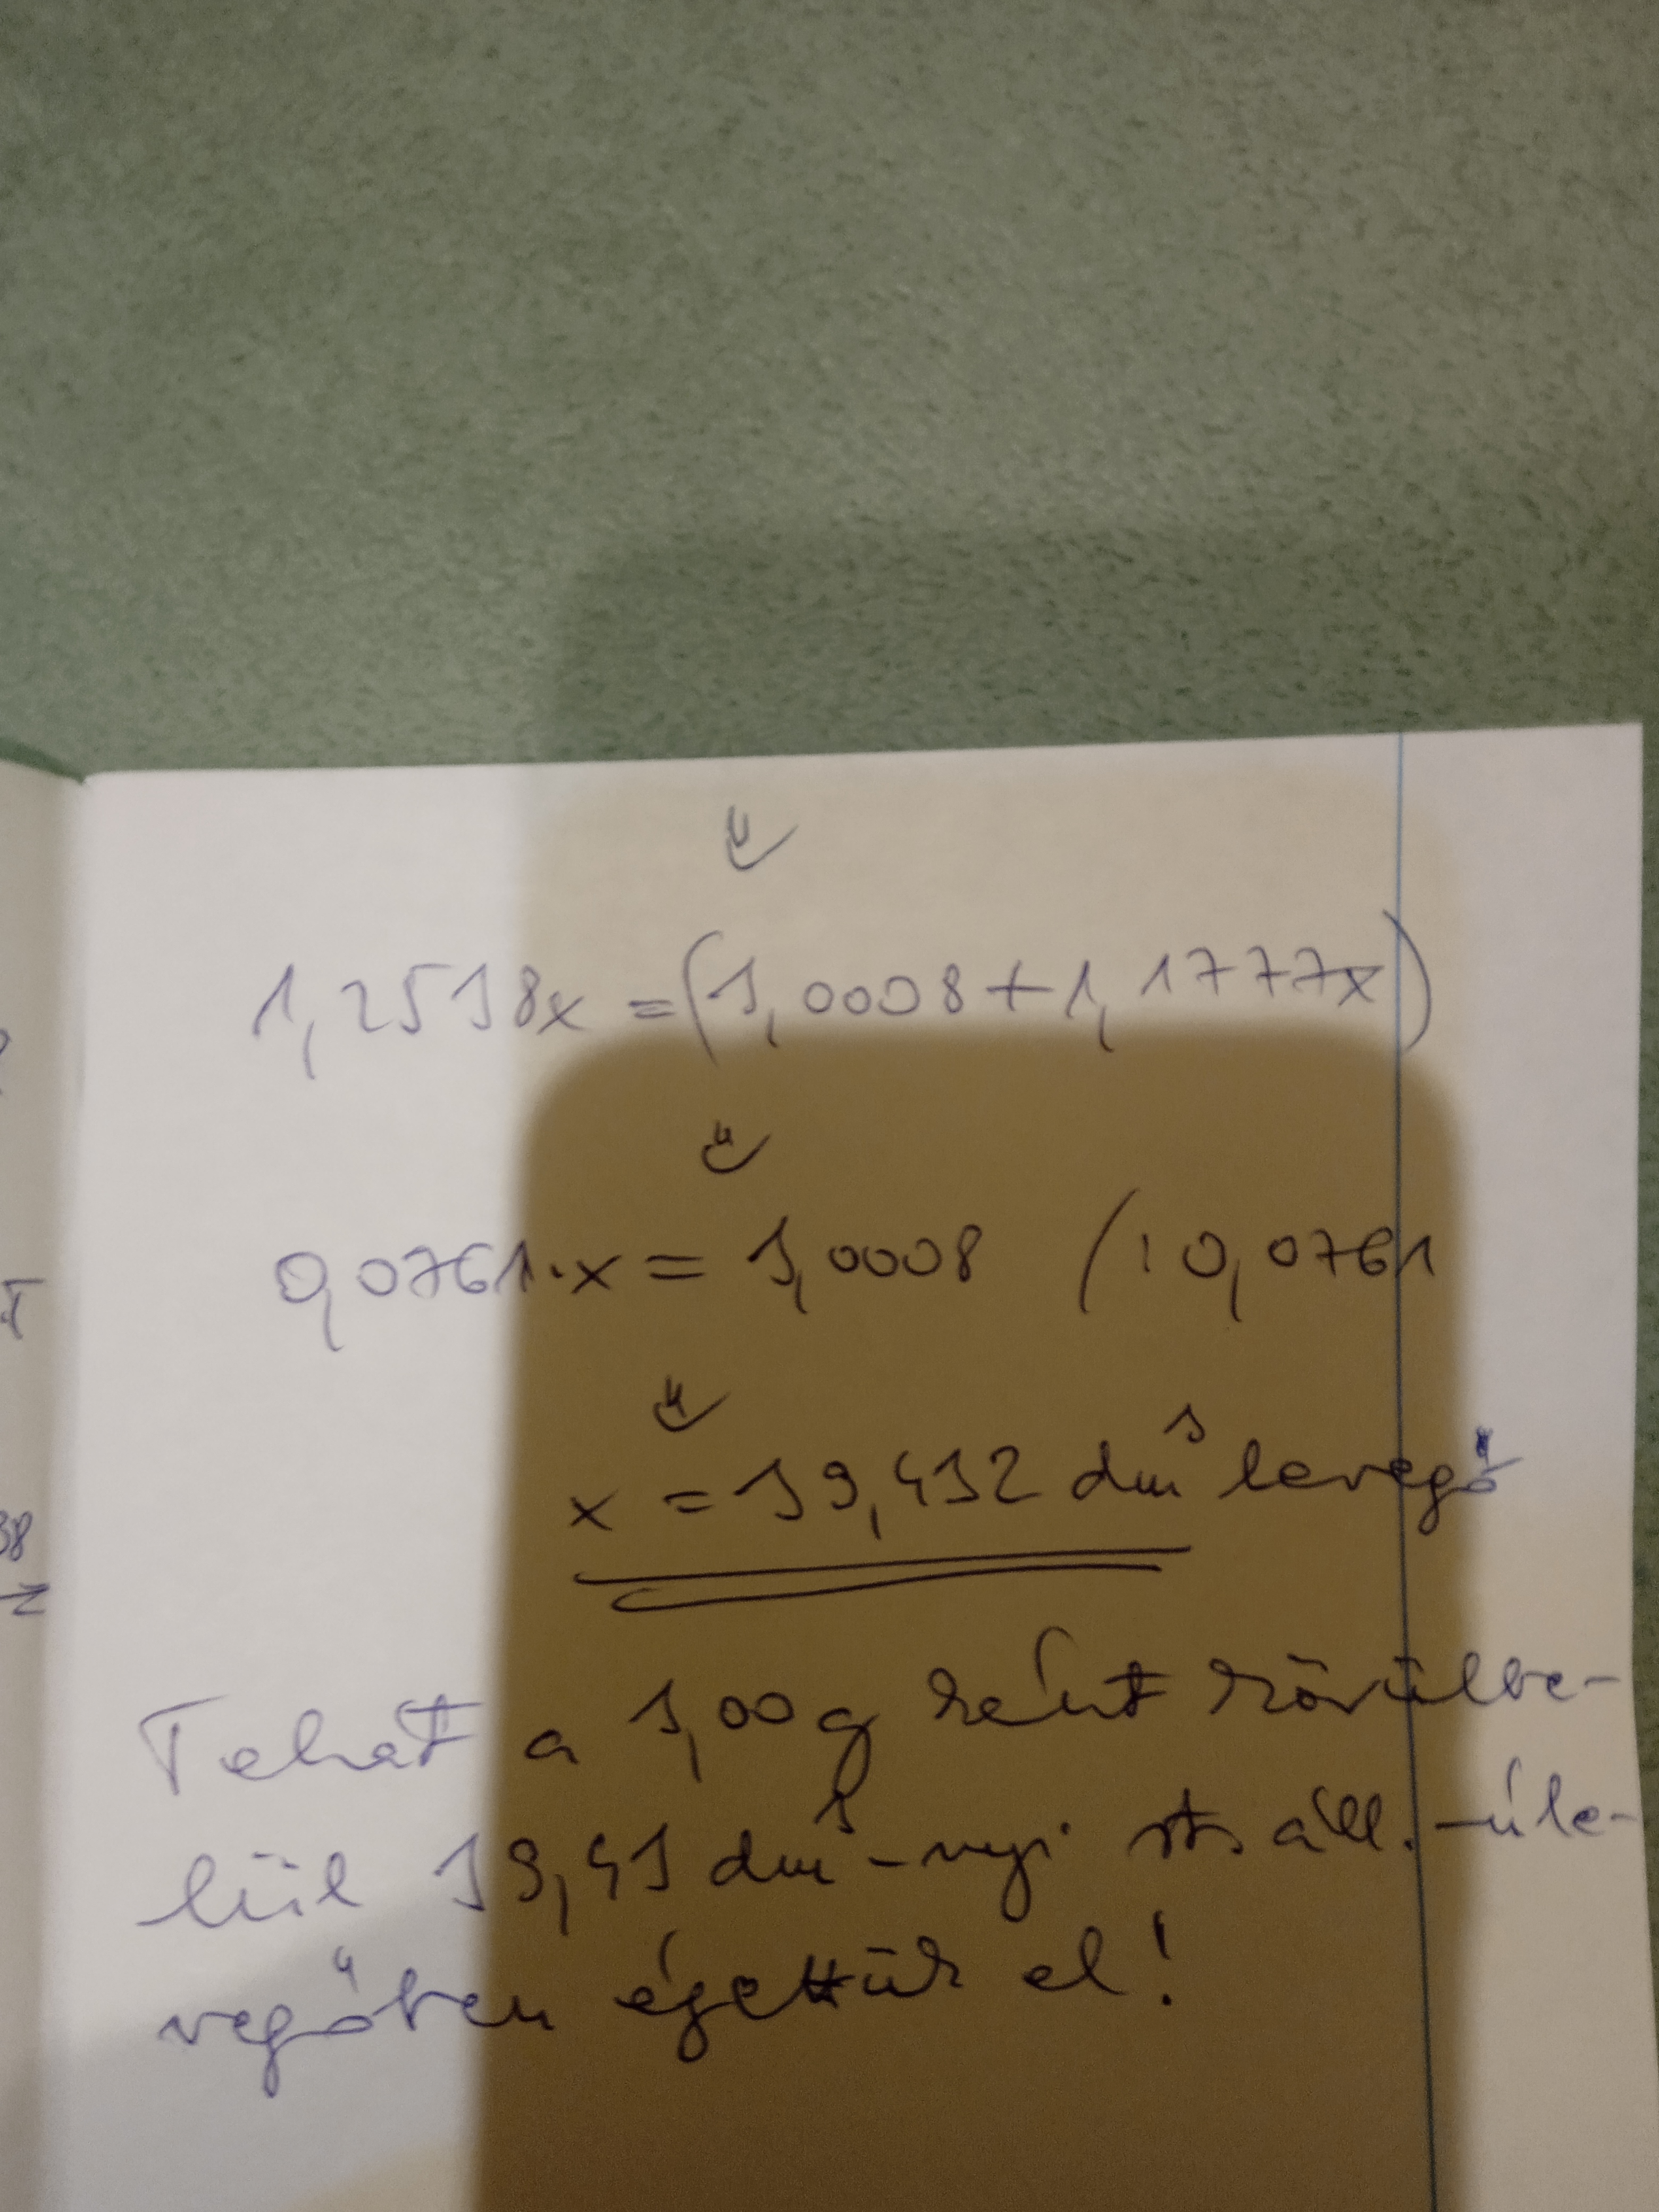 1,2538x = (3,0008 + 1,1777x)
0,0761·x = 3,0008 /: 0,0761
x = 39,432 dm³ levegő
Tehát a 3,00g ként körülbe-
lül 39,43 dm³-nyi st. áll. -ú le-
vegőben égettük el!